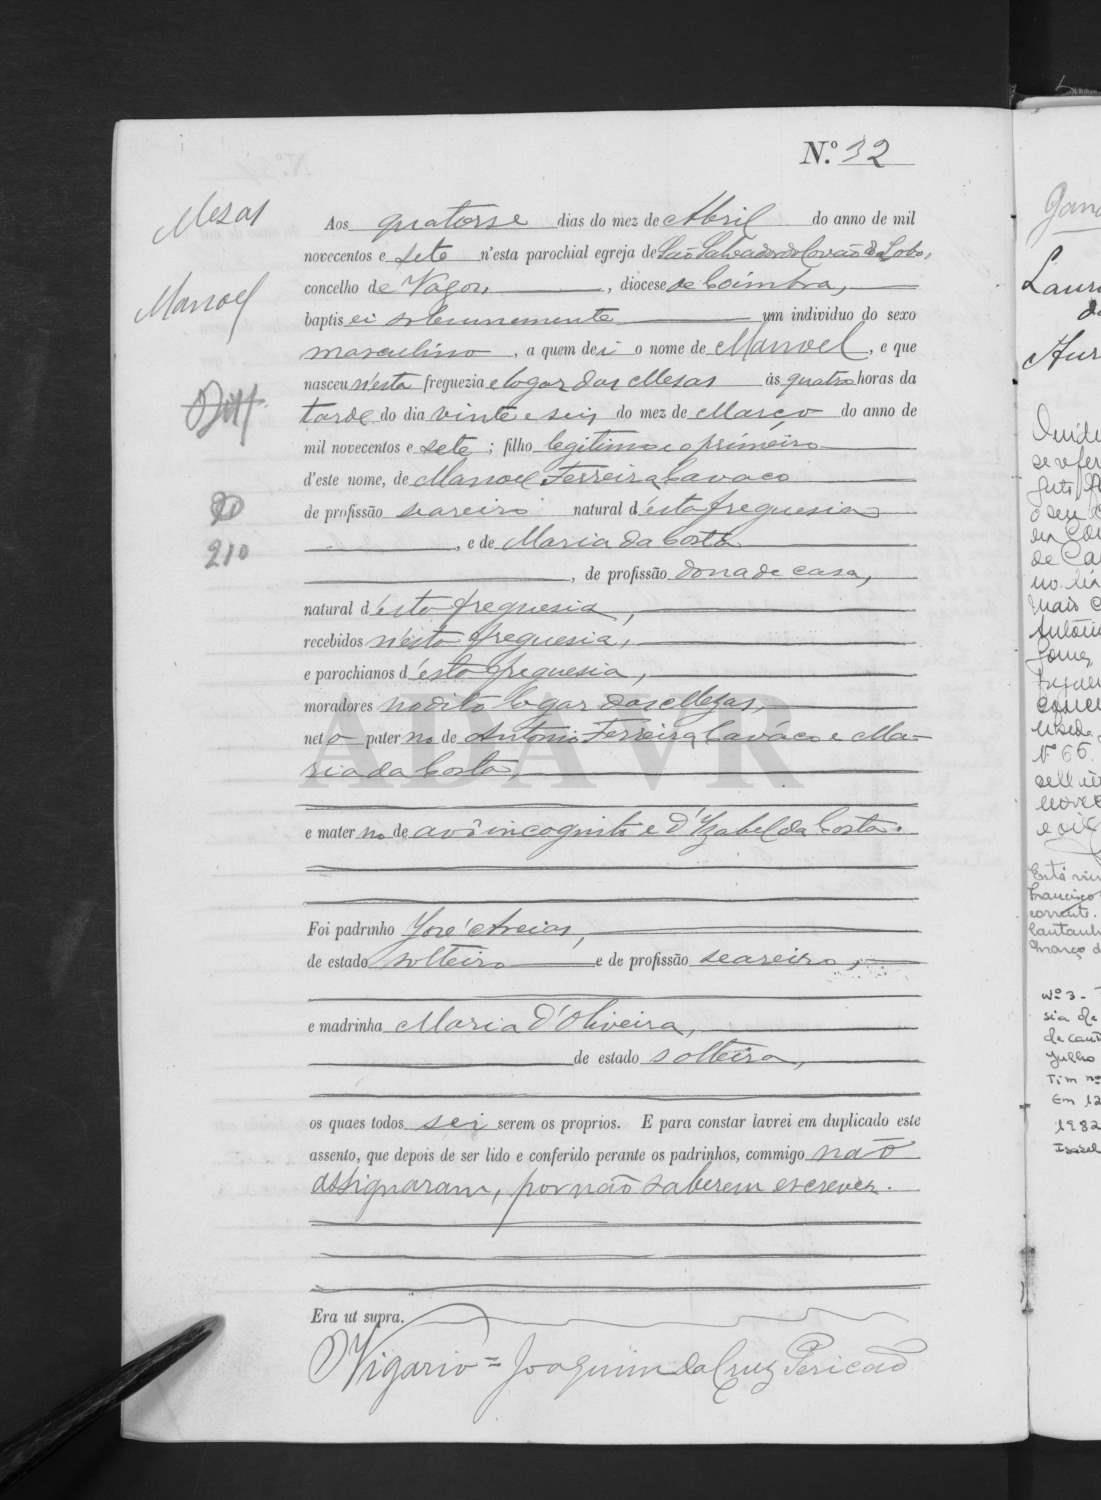 N.º 32
Mezas
Manoel
210
Aos quatorse dias do mez de Abril do anno de mil
novecentos e sete n'esta parochial egreja de São Salvador do Covão do Lobo,
concelho de Vagos, , diocese de Coimbra,
baptisei solemnemente um individuo do sexo
masculino , a quem dei o nome de Manoel , e que
nasceu n'esta freguezia e logar das Mesas ás quatro horas da
tarde do dia vinte e seis do mez de Março do anno de
mil novecentos e sete ; filho legitimo e o primeiro
d'este nome, de Manoel Ferreira Cavaco
de profissão seareiro natural d'ésta freguesia
, e de Maria da Costa
, de profissão dona de casa,
natural d'ésta freguesia,
recebidos n'ésta freguesia,
e parochianos d'ésta freguesia,
moradores no dito logar das Mezas,
neto paterno de Antonio Ferreira Caváco e Ma-
ria da Costa,
e materno de avô incognito e d'Yzabel da Costa.
Foi padrinho José Areias,
de estado solteiro e de profissão seareiro,
e madrinha Maria d'Oliveira,
de estado solteira,
os quaes todos sei serem os proprios. E para constar lavrei em duplicado este
assento, que depois de ser lido e conferido perante os padrinhos, commigo não
assignaram, por não saberem escrever.
Era ut supra.
O Vigario = Joaquim da Cruz Pericão
ADAVR
Nº 3 -
sia de
Julho
Em 12
1982